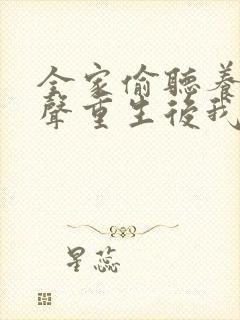 全家偷聽養
聲重生後我
星蕊